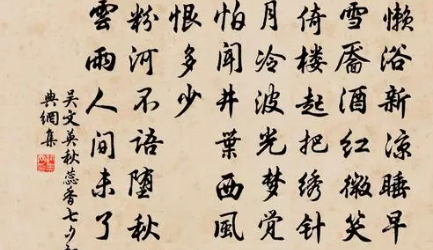 懒浴新凉睡早
雪靥酒红微笑
倚楼起把绣针
月冷波光梦觉
怕闻井叶西风
恨多少
粉河不语堕秋
云雨人间未了
吴文英秋蕊香七夕
典网集